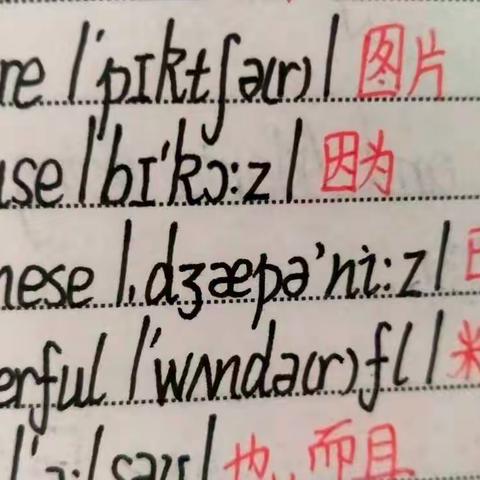 re /'pɪktʃə(r)/ 图片
use /bɪ'kɔ:z/ 因为
nese /ˌdʒæpə'ni:z/
erful /'wʌndə(r)fl/
/'ɔ:lsəʊ/ 也, 而且